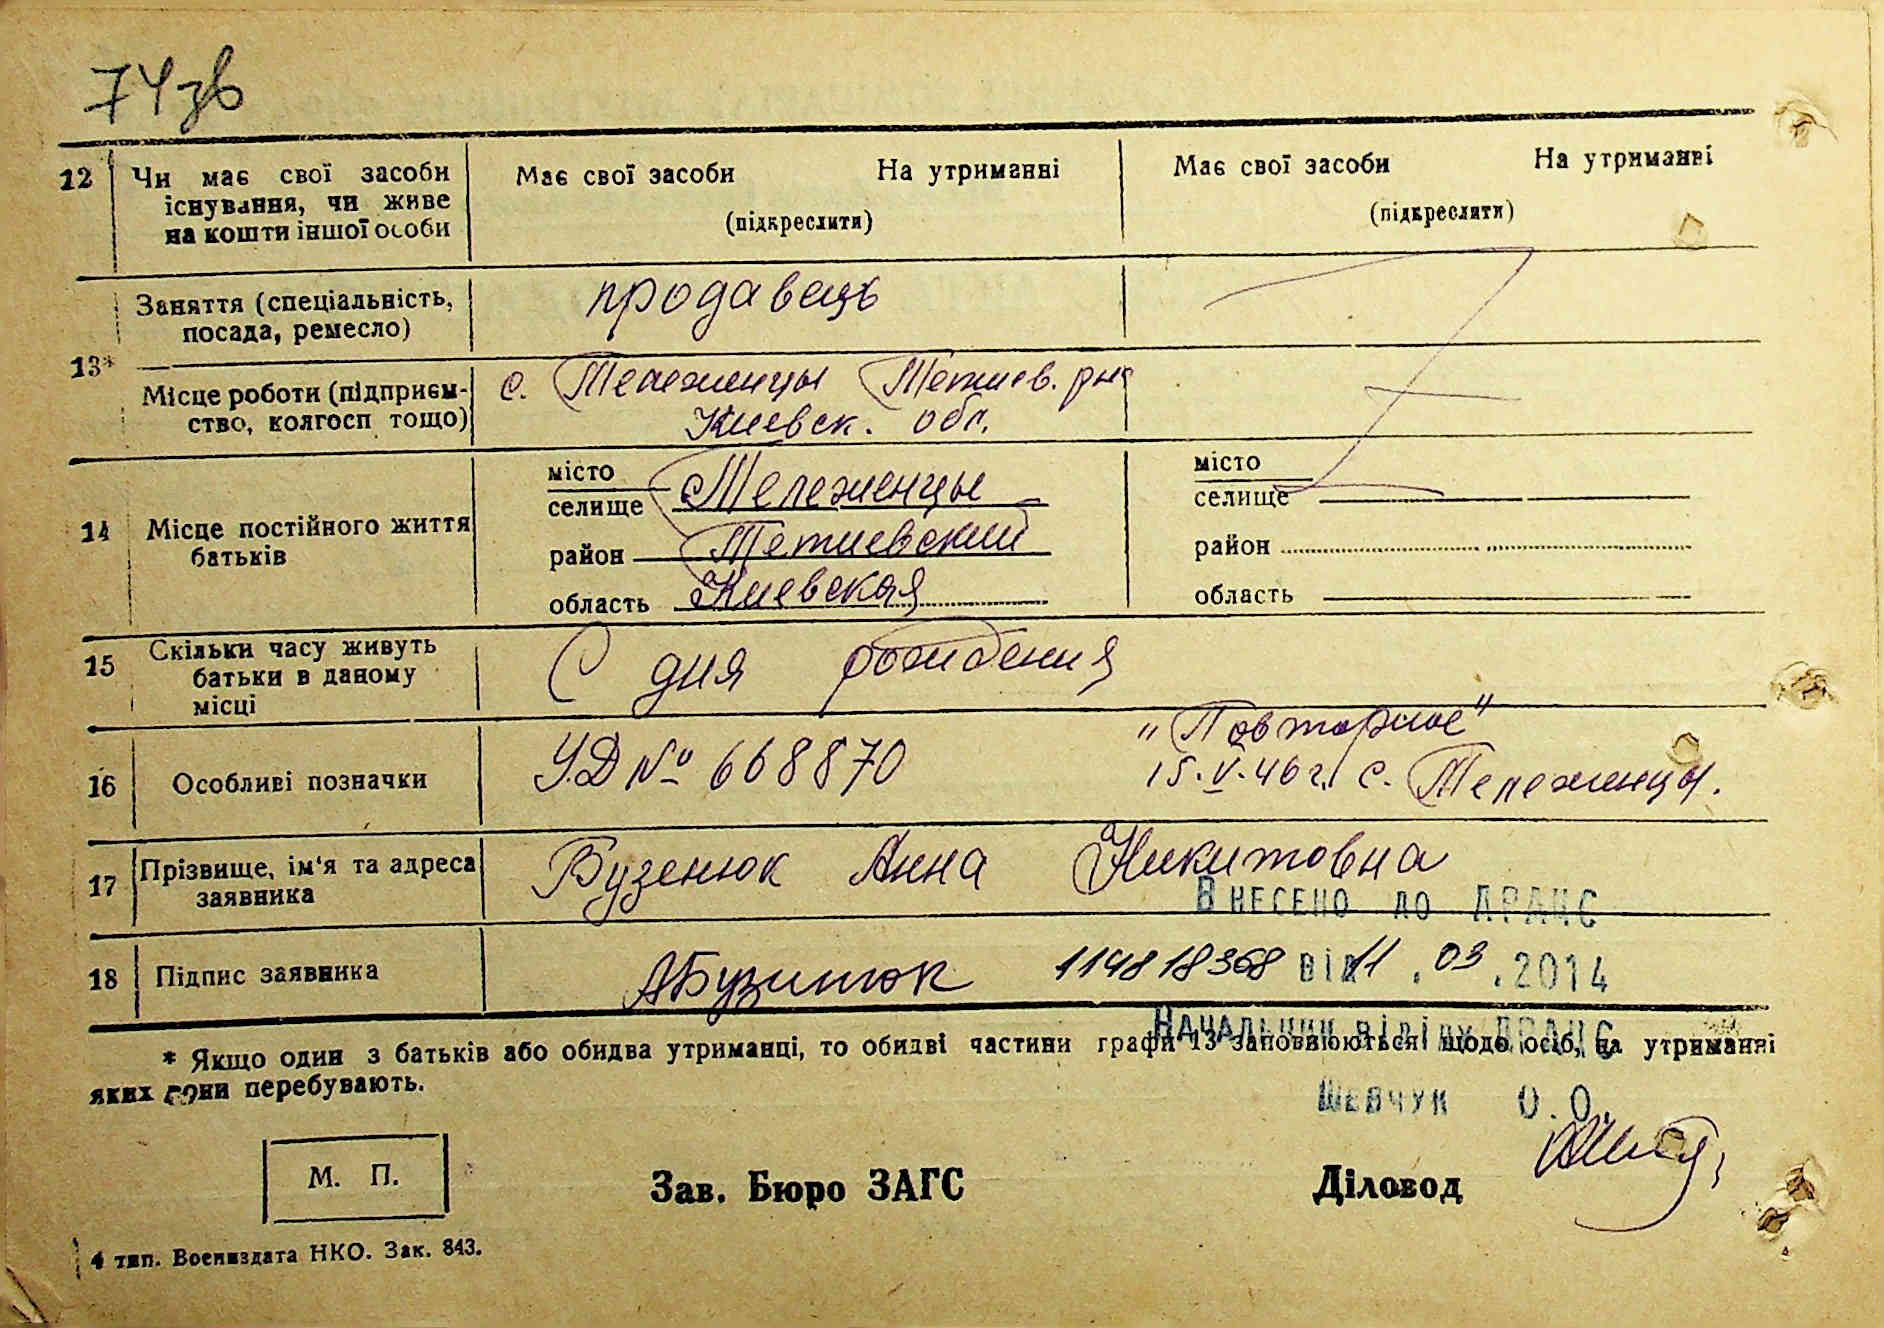 74зв
12 Чи має свої засоби існування, чи живе на кошти іншої особи
Має свої засоби На утриманні
(підкреслити)
Має свої засоби На утриманні
(підкреслити)
13* Заняття (спеціальність, посада, ремесло)
продавець
Місце роботи (підприєм-
ство, колгосп тощо)
с. Тележенцы Тетиев. р-на
Киевск. обл.
14 Місце постійного життя батьків
місто
селище с Тележенцы
район Тетиевский
область Киевская
місто
селище
район
область
15 Скільки часу живуть батьки в даному місці
С дня рождения
16 Особливі позначки
УД № 668870
"Повторное"
15.V.46 г. с. Тележенцы.
17 Прізвище, ім'я та адреса заявника
Бузенюк Анна Никитовна
Внесено до ДРАЦС
18 Підпис заявника
АБузинюк
114818368 від 11.03.2014
Начальник відділу ДРАЦС
* Якщо один з батьків або обидва утриманці, то обидві частини графи 13 заповнюються щодо осіб, на утриманні
яких вони перебувають.
Шевчук О.О.
М. П.
Зав. Бюро ЗАГС
Діловод
4 тип. Воениздата НКО. Зак. 843.